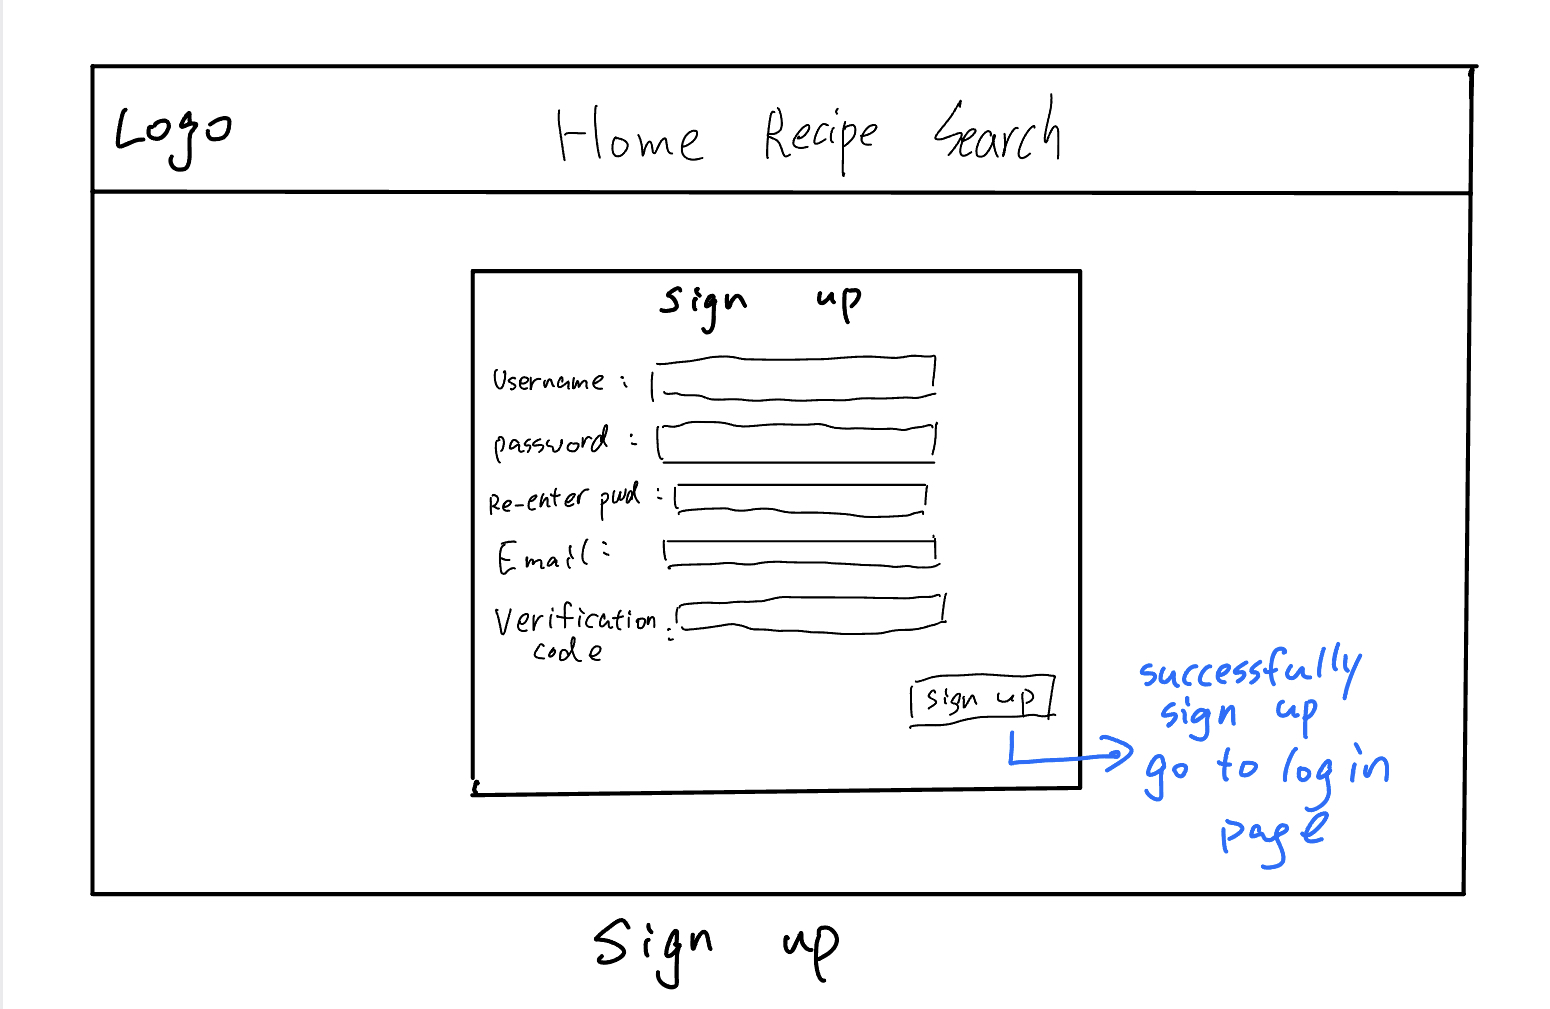 Logo
Home Recipe Search
Sign up
Username :
password :
Re-enter pwd :
Email :
Verification code :
sign up
successfully
sign up
go to log in
page
Sign up